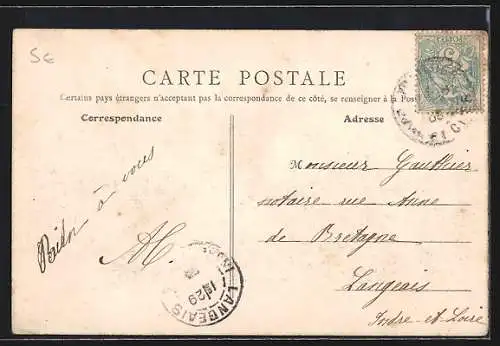 5€
CARTE POSTALE
Certains pays étrangers n'acceptant pas la correspondance de ce côté, se renseigner à la Poste
Correspondance
Adresse
Bien à vous
Monsieur Gauthier
notaire rue Anne
de Bretagne
Langeais
Indre-et-Loire
LANGEAIS